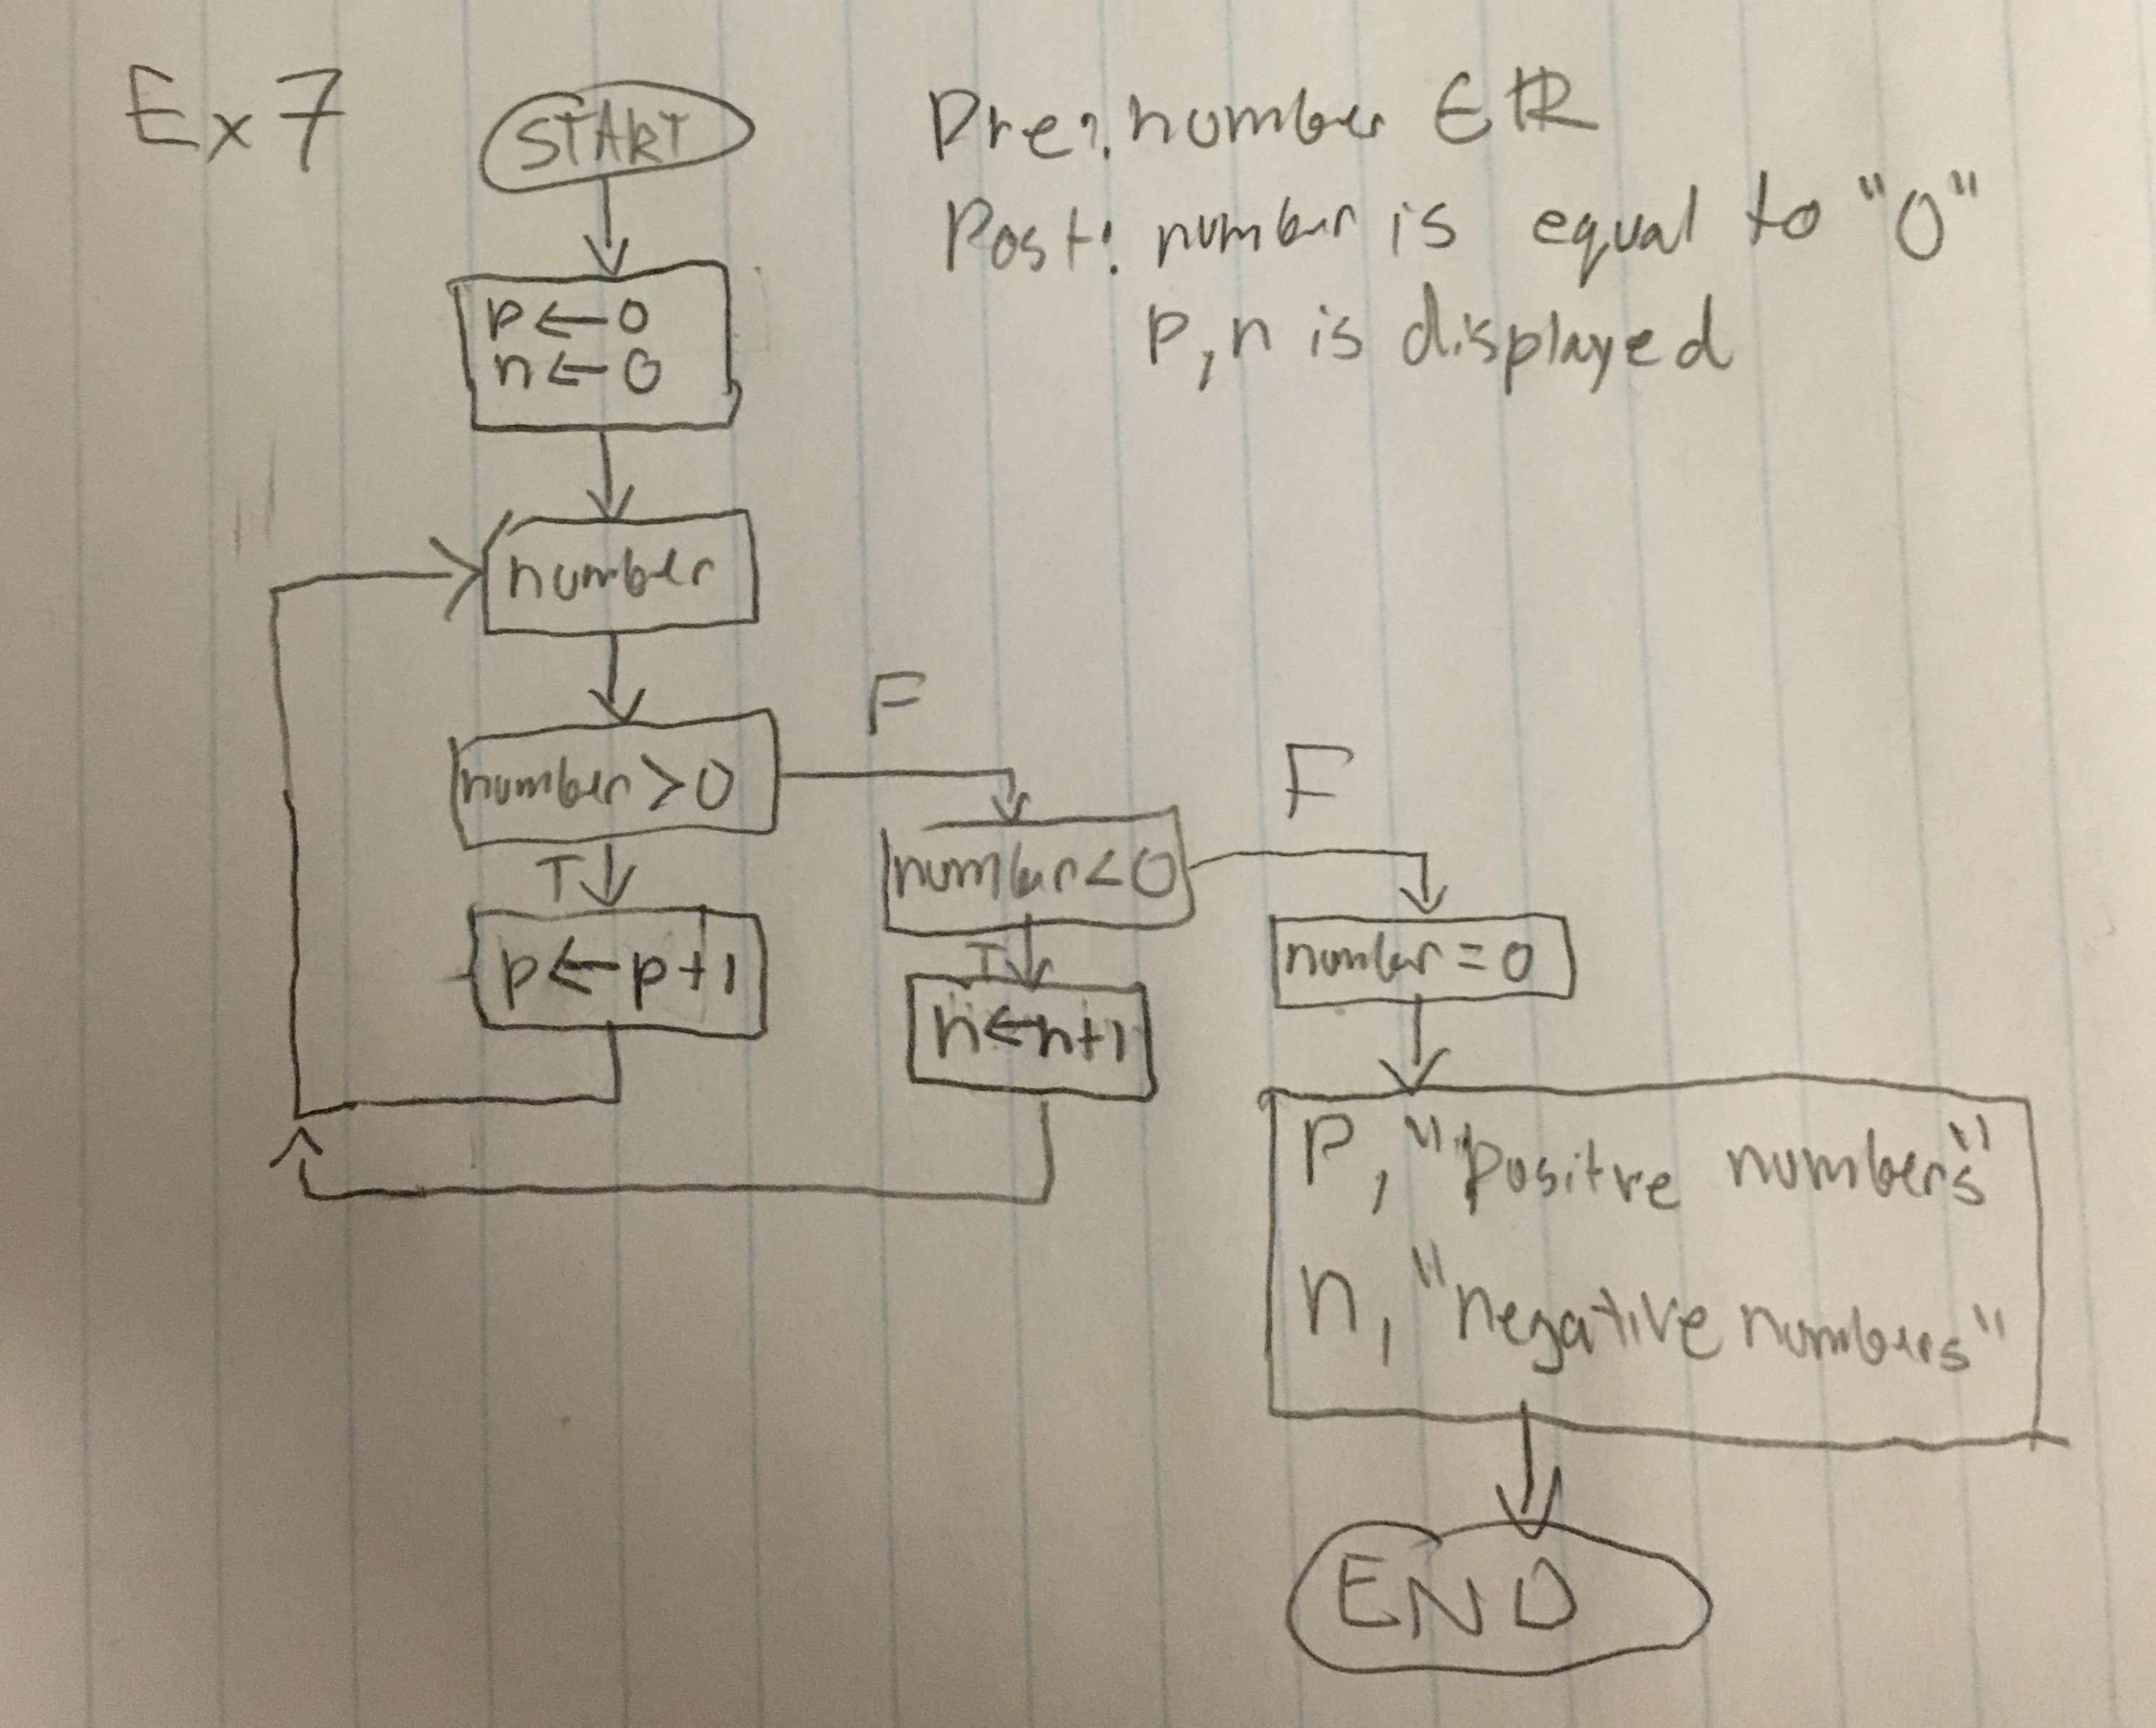 Ex 7
START
Pre: number ∈ ℝ
Post: number is equal to "0"
P, n is displayed
p ← 0
n ← 0
number
number > 0
F
T
p ← p + 1
number < 0
F
T
n ← n + 1
number = 0
P, "positive numbers"
n, "negative numbers"
END